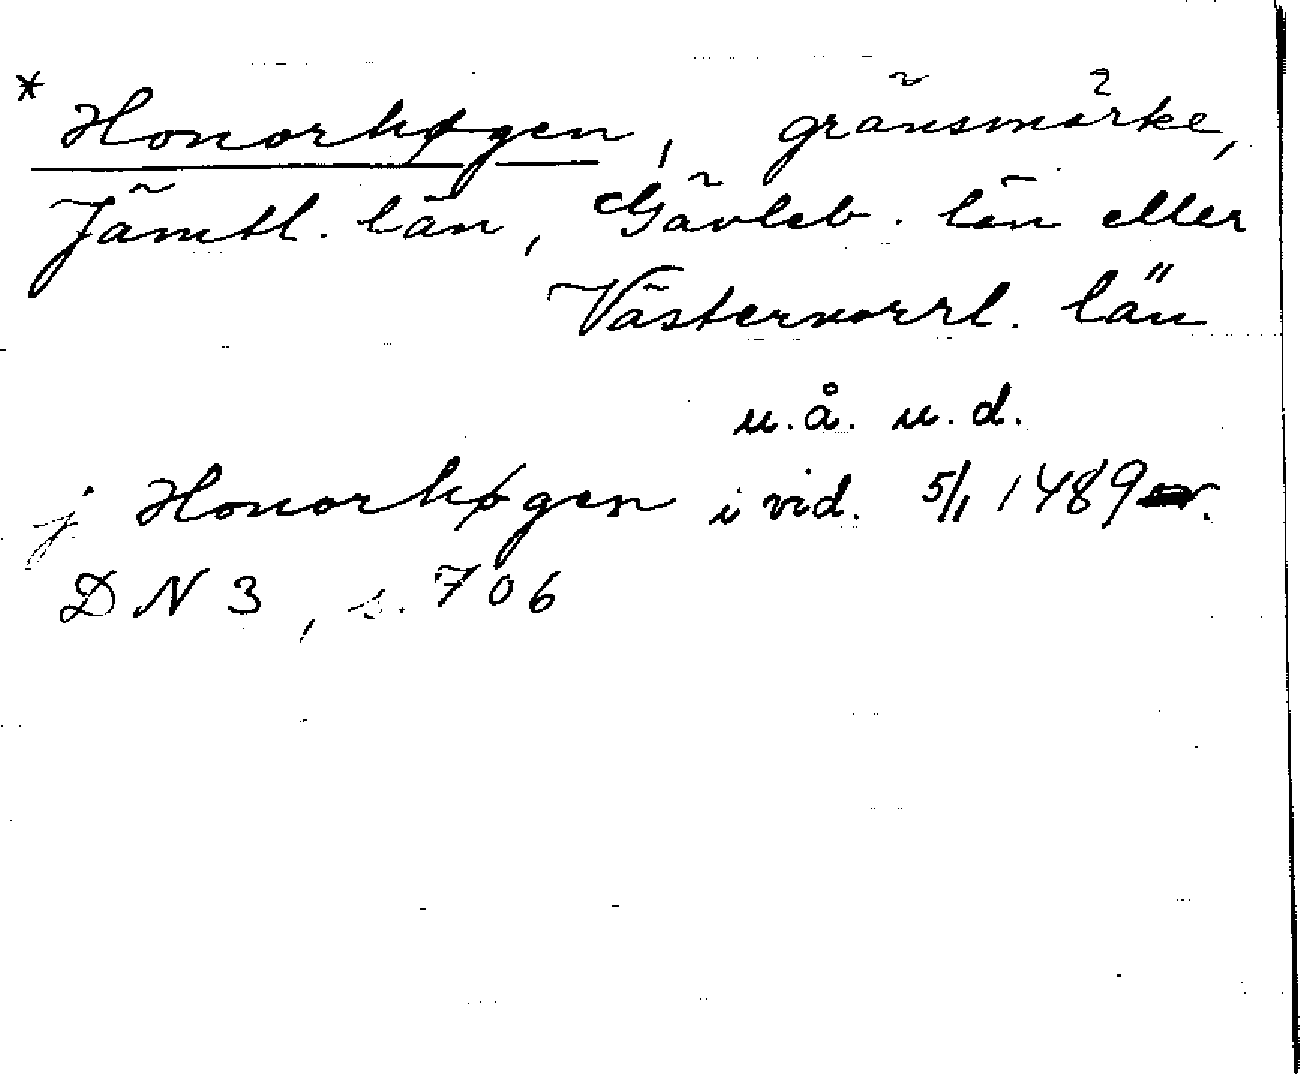 * Honorhøgen, gränsmärke,
Jämtl. län, Gävleb. län eller
Västernorrl. län
u.å. u.d.
j Honorhøgen i vid. 5/1 1489
DN 3, s. 706